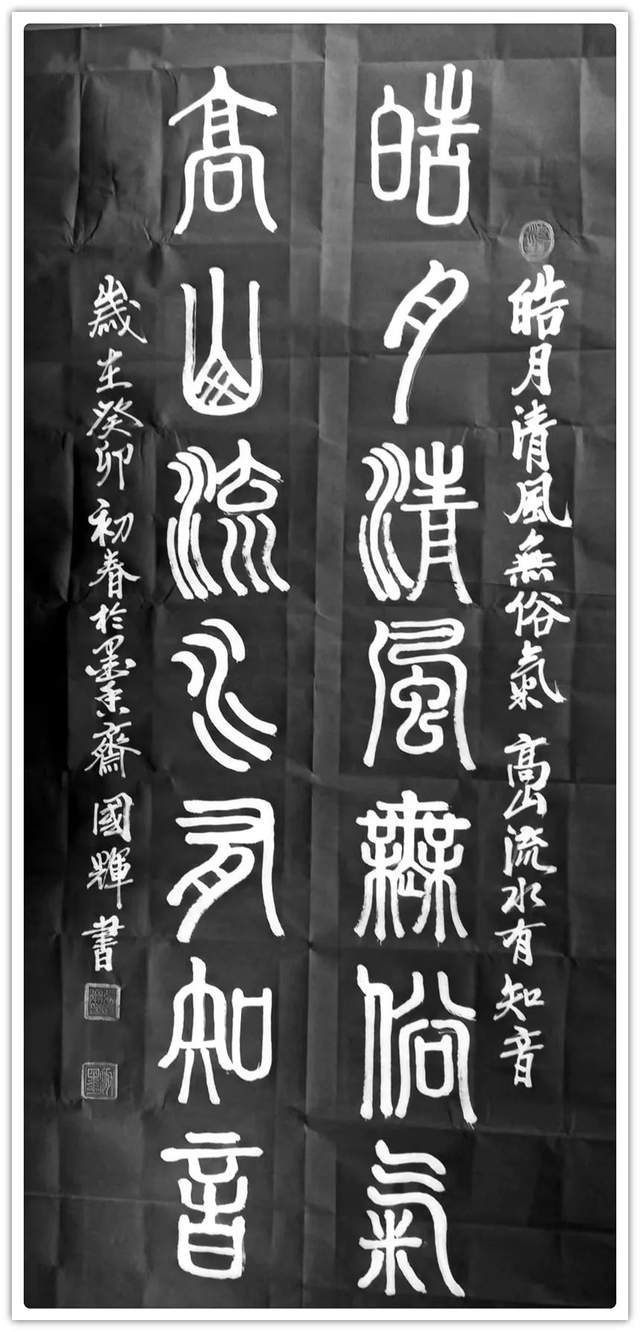 皓月清風無俗氣 高山流水有知音
皓月清風無俗氣
高山流水有知音
歲在癸卯初春於墨香齋 國輝書